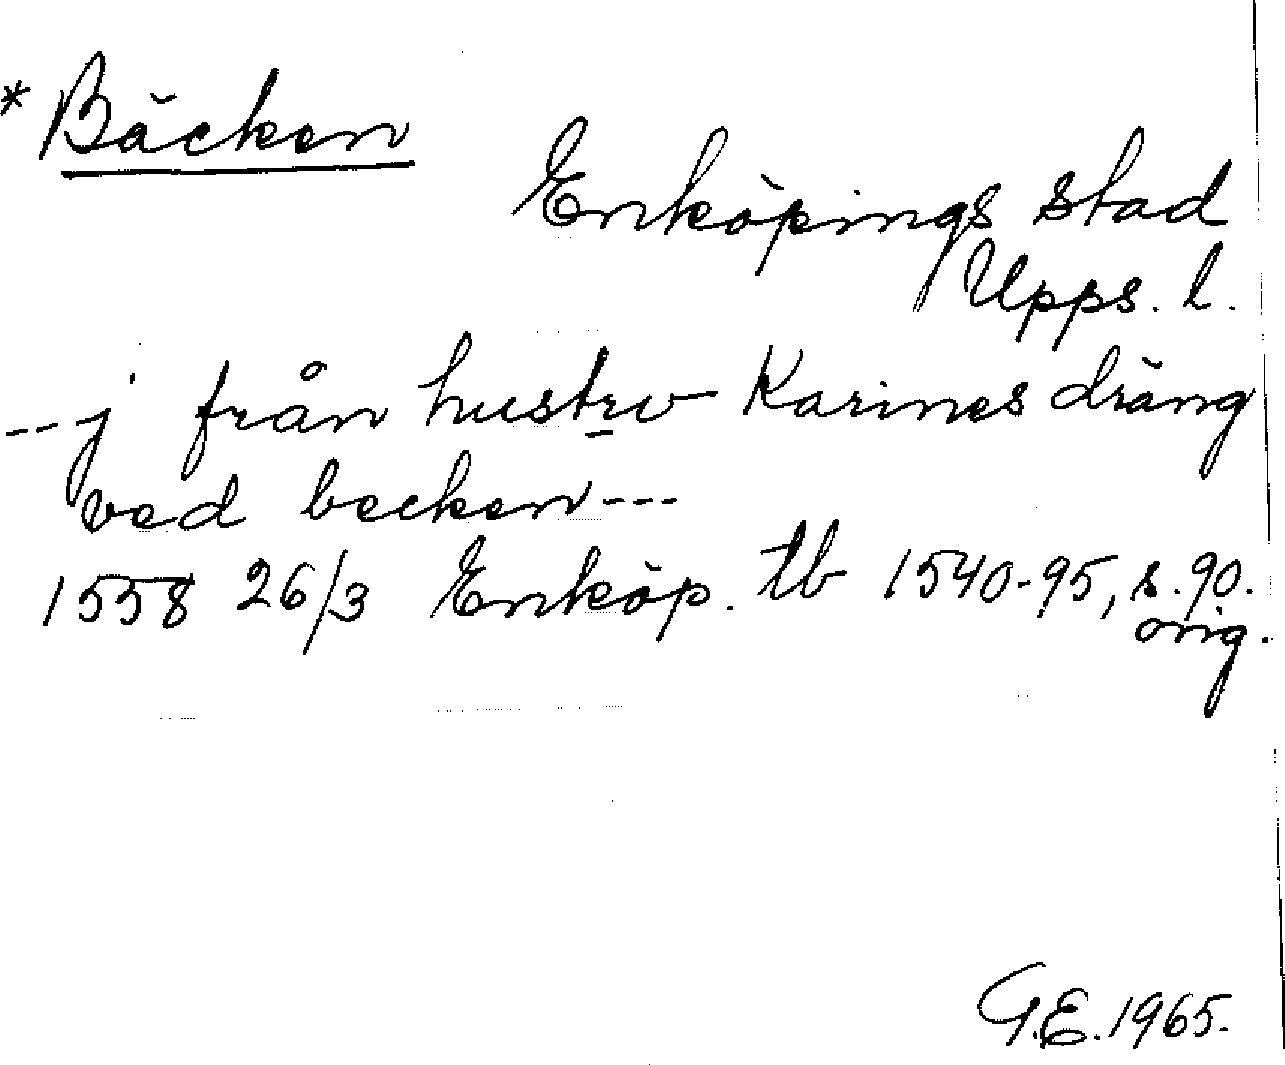 * Bäcken
Enköpings stad
Upps. l.
---j från hustrv Karines dräng
ved becken---
1558 26/3 Enköp. tb 1540-95, s. 90.
orig.
G.E. 1965.